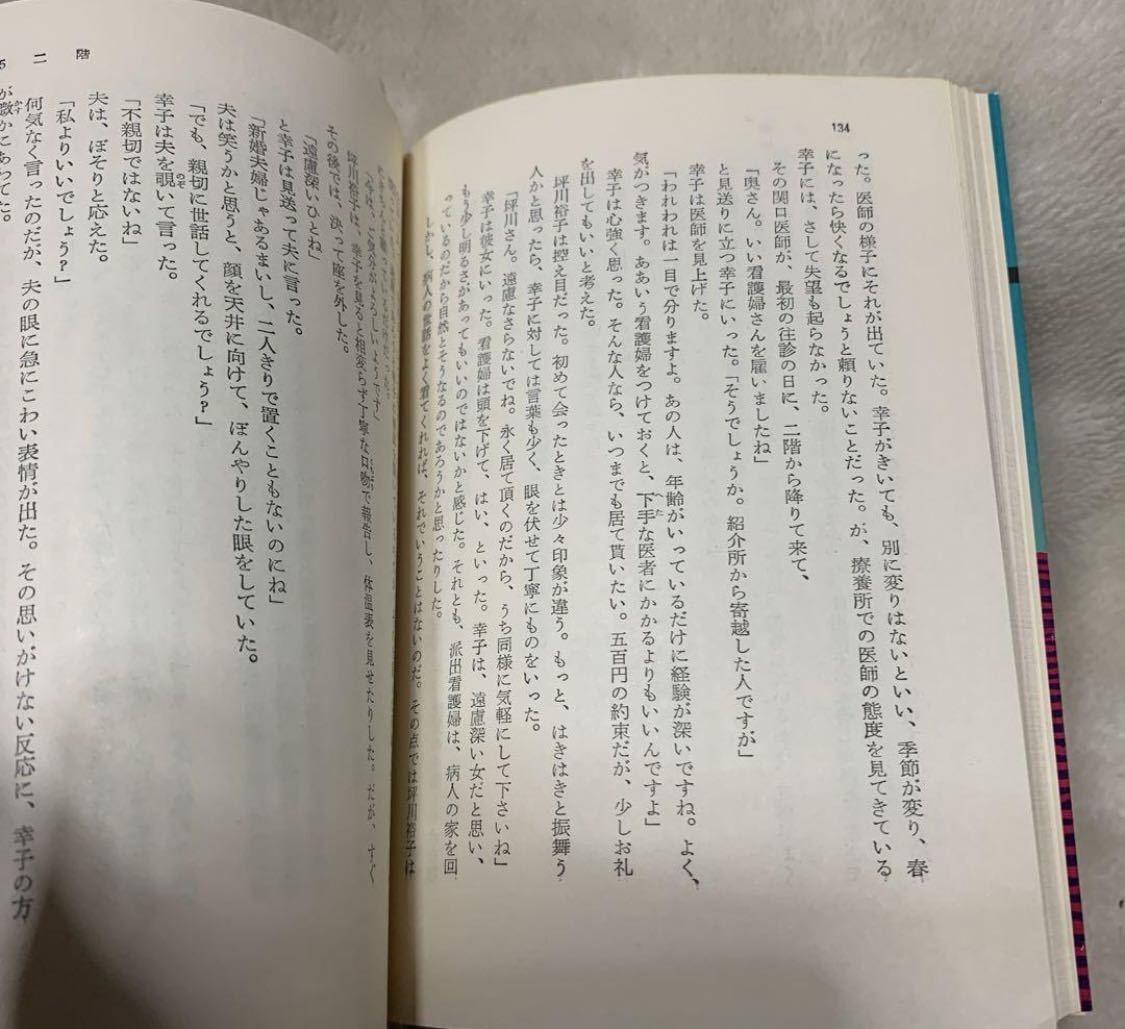 134
った。医師の様子にそれが出ていた。幸子がきいても、別に変りはないといい、季節が変り、春
になったら快くなるでしょうと頼りないことだった。が、療養所での医師の態度を見てきている
幸子には、さして失望も起らなかった。
その関口医師が、最初の往診の日に、二階から降りて来て、
「奥さん。いい看護婦さんを雇いましたね」
と見送りに立つ幸子にいった。「そうでしょうか。紹介所から寄越した人ですが」
幸子は医師を見上げた。
「われわれは一目で分りますよ。あの人は、年齢がいっているだけに経験が深いですね。よく、
気がつきます。ああいう看護婦をつけておくと、下手な医者にかかるよりもいいんですよ」
へた
幸子は心強く思った。そんな人なら、いつまでも居て貰いたい。五百円の約束だが、少しお礼
を出してもいいと考えた。
坪川裕子は控え目だった。初めて会ったときとは少々印象が違う。もっと、はきはきと振舞う
人かと思ったら、幸子に対しては言葉も少く、眼を伏せて丁寧にものをいった。
「坪川さん。遠慮なさらないでね。永く居て頂くのだから、うち同様に気軽にして下さいね」
幸子は彼女にいった。看護婦は頭を下げて、はい、といった。幸子は、遠慮深い女だと思い、
もう少し明るさがあってもいいのではないかと感じた。それとも、派出看護婦は、病人の家を回
っているのだから自然とそうなるのであろうかと思ったりした。
しかし、病人の世話をよく看てくれれば、それでいうことはないのだ。その点では坪川裕子は
二階
「今は、ご気分がよろしいようです」
坪川裕子は、幸子を見ると相変らず丁寧な口吻で報告し、体温表を見せたりした。だが、すぐ
その後では、決って座を外した。
「遠慮深いひとね」
と幸子は見送って夫に言った。
「新婚夫婦じゃあるまいし、二人きりで置くこともないのにね」
夫は笑うかと思うと、顔を天井に向けて、ぼんやりした眼をしていた。
「でも、親切に世話してくれるでしょう？」
幸子は夫を覗いて言った。
のぞ
「不親切ではないね」
夫は、ぼそりと応えた。
「私よりいいでしょう？」
何気なく言ったのだが、夫の眼に急にこわい表情が出た。その思いがけない反応に、幸子の方
が微かにあわてた。
かす